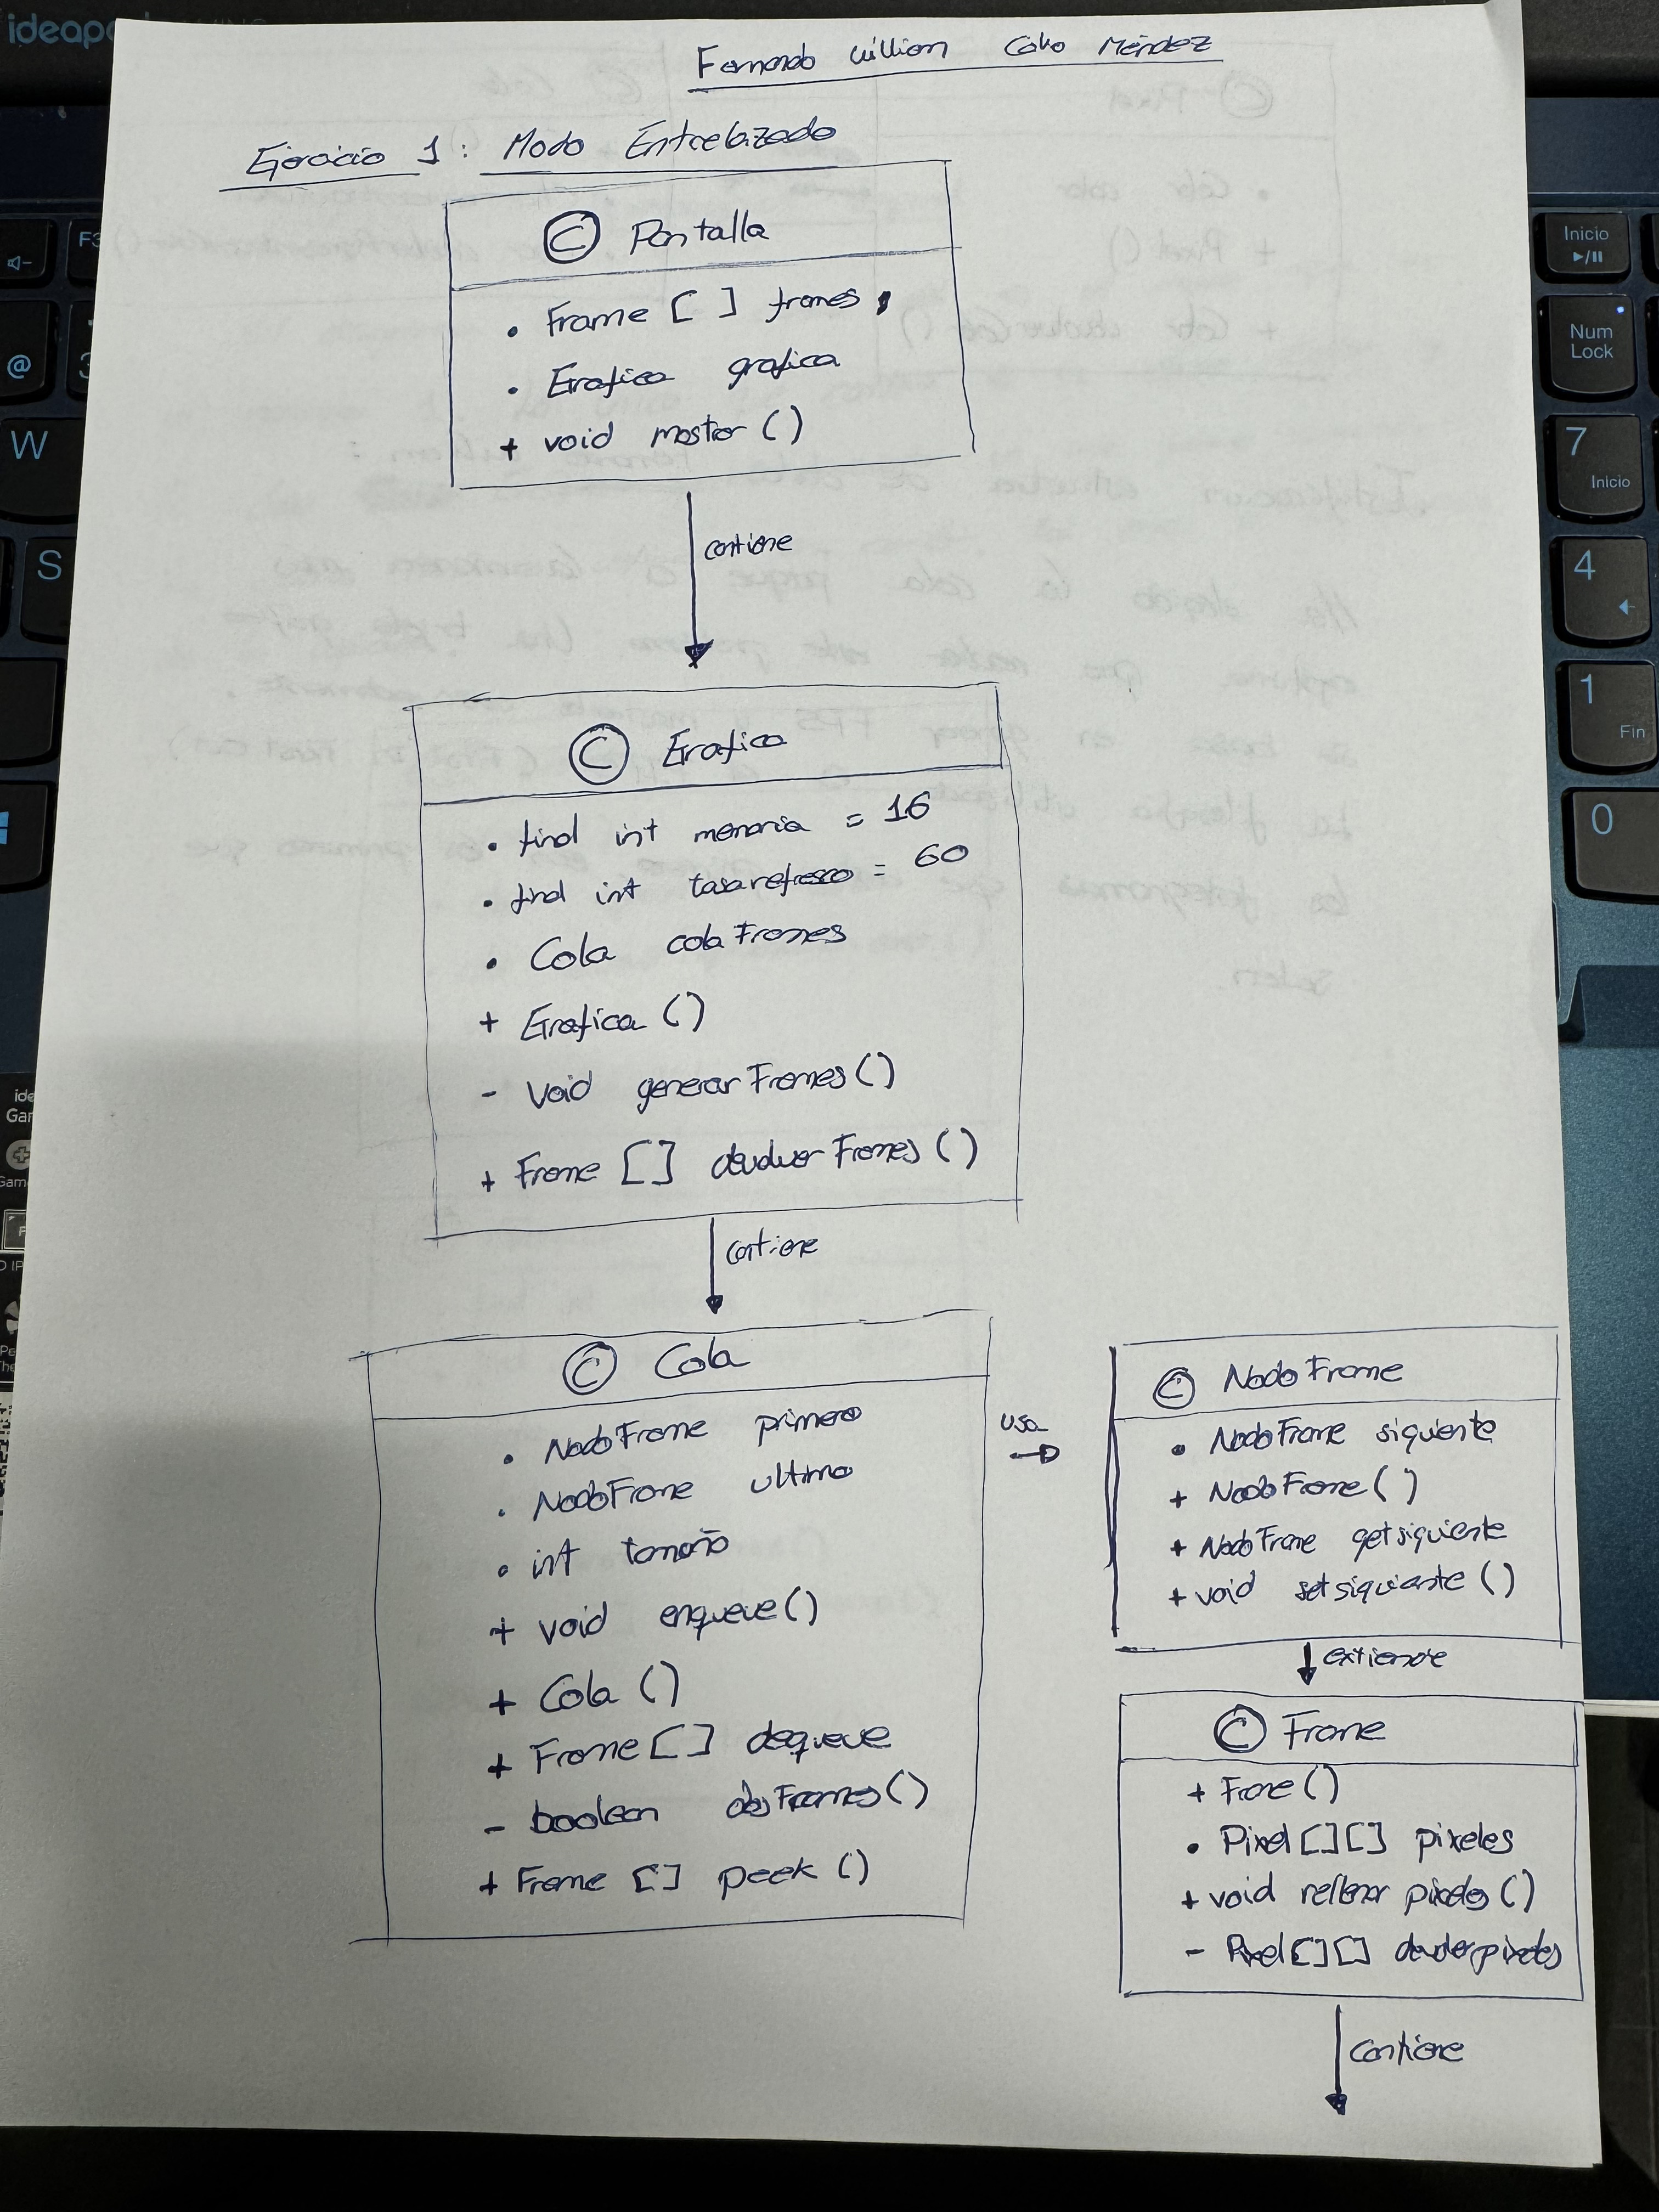 Fernando William Calvo Méndez
Ejercicio 1: Modo Entrelazado
© Pantalla
• Frame [ ] frames
• Grafica grafica
+ void mostrar ( )
contiene
© Grafica
• final int memoria = 16
• final int tasarefresco = 60
• Cola colaFrames
+ Grafica ( )
- void generarFrames ( )
+ Frame [ ] devolverFrames ( )
contiene
© Cola
• NodoFrame primero
• NodoFrame ultimo
• int tamaño
+ void enqueue ( )
+ Cola ( )
+ Frame [ ] dequeue
- boolean dosFrames ( )
+ Frame [ ] peek ( )
usa
© NodoFrame
• NodoFrame siguiente
+ NodoFrame ( )
+ NodoFrame getsiguiente
+ void setsiguiente ( )
extiende
© Frame
+ Frame ( )
• Pixel [ ] [ ] pixeles
+ void rellenar pixeles ( )
- Pixel [ ] [ ] devolverpixeles
contiene
ideapa
F3
@
W
S
Inicio
Num
Lock
7
Inicio
4
1
Fin
0